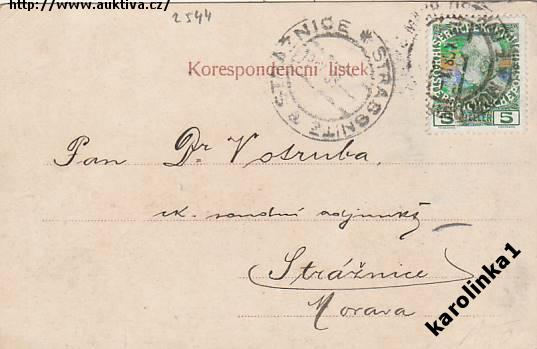 http://www.auktiva.cz/
2544
Korespondenční lístek.
STRÁŽNICE * STRASSNITZ *
5 5
Pan Dr Votruba,
ck. soudní adjunkt
Strážnice
Morava
karolinka1